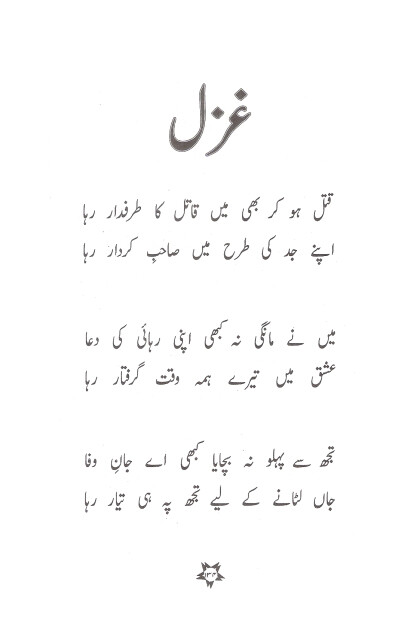 غزل
قتل ہو کر بھی میں قاتل کا طرفدار رہا
اپنے جد کی طرح میں صاحبِ کردار رہا
میں نے مانگی نہ کبھی اپنی رہائی کی دعا
عشق میں تیرے ہمہ وقت گرفتار رہا
تجھ سے پہلو نہ بچایا کبھی اے جانِ وفا
جاں لٹانے کے لیے تجھ پہ ہی تیار رہا
۱۳۴